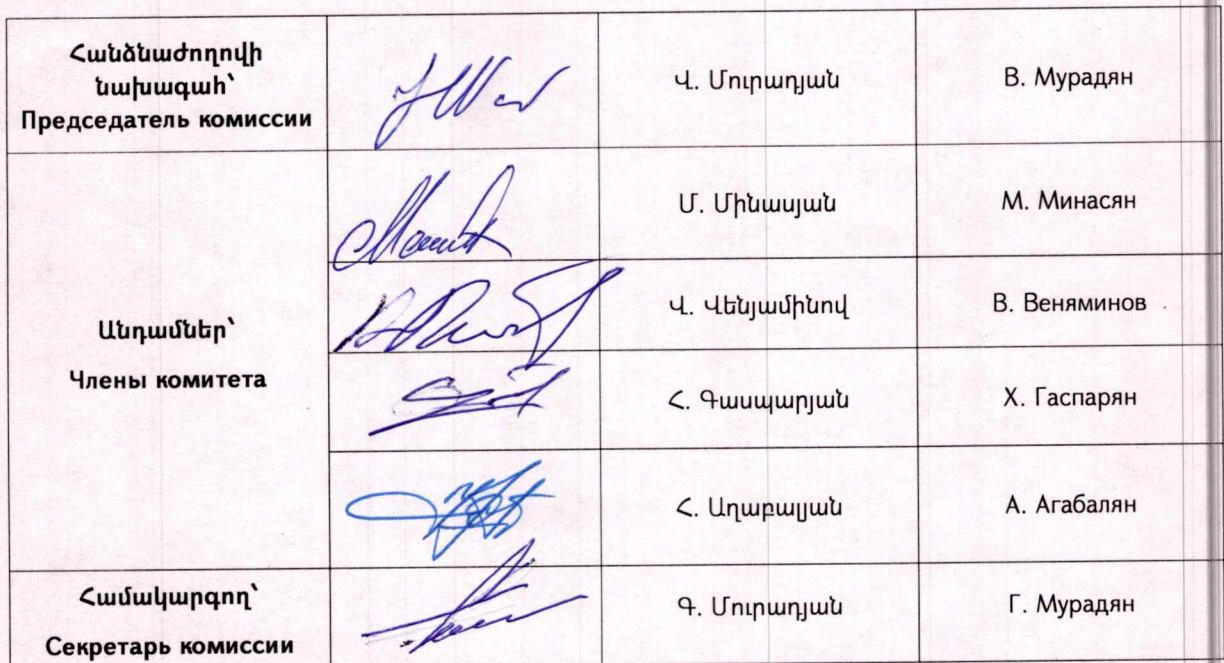 Հանձնաժողովի
նախագահ՝
Председатель комиссии
Վ. Մուրադյան
В. Мурадян
Մ. Մինասյան
М. Минасян
Անդամներ՝
Члены комитета
Վ. Վենյամինով
В. Веняминов
Հ. Գասպարյան
Х. Гаспарян
Հ. Աղաբալյան
А. Агабалян
Համակարգող՝
Секретарь комиссии
Գ. Մուրադյան
Г. Мурадян